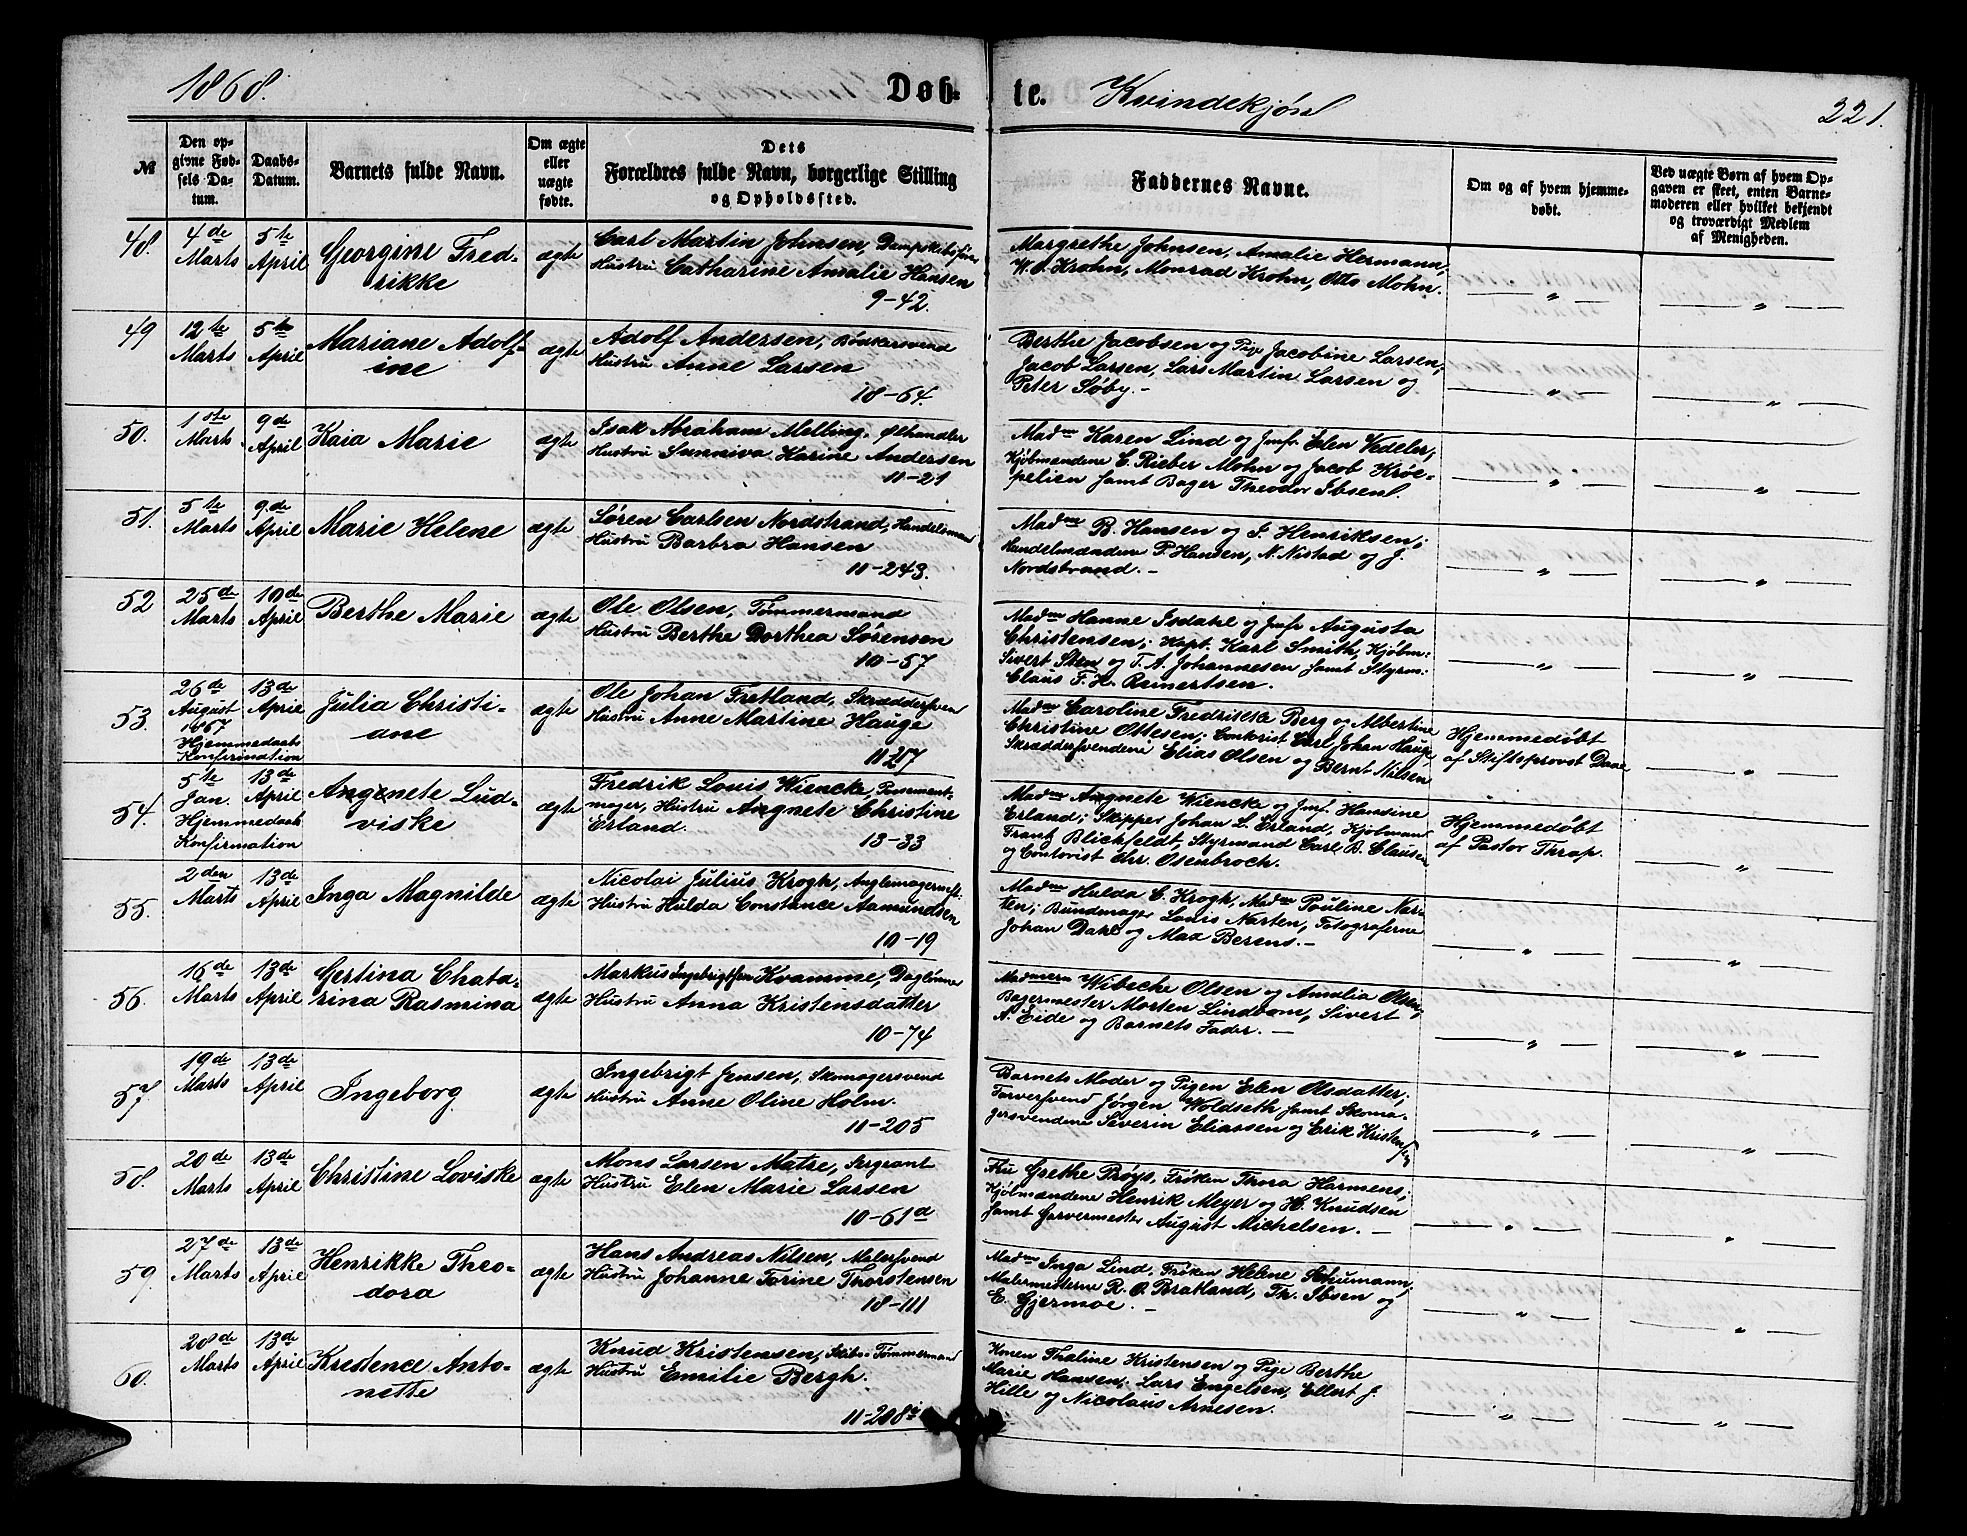 1868. Døb- te. Kvindekjøn 221.
№
Den op-
givne Fød-
sels Da-
tum.
Daabs-
Datum.
Barnets fulde Navn.
Om ægte
eller
uægte
fødte.
Dets
Forældres fulde Navn, borgerlige Stilling
og Opholdssted.
Faddernes Navne.
Om og af hvem hjemme-
døbt.
Ved uægte Børn af hvem Op-
gaven er skeet, enten Barne-
moderen eller hvilket bekjendt
og troværdigt Medlem
af Menigheden.
48.
4de
Marts
5te
April
Georgine Fred-
rikke
ægte
Carl Martin Johnsen,
Hustru Catharine Amalie Hansen
9-42.
Margrethe Johnsen, Amalie Hermann,
W. D. Krohn, Monrad Krohn, Otto Mohn.
— " —
— " —
49
12te
Marts
5te
April
Mariane Adolf-
ine
ægte
Adolf Andersen, Bønkersvend
Hustru Anne Larsen
18-64.
Berthe Jacobsen og Pige Jacobine Larsen,
Jacob Larsen, Lars Martin Larsen og
Peter Søby.-
— " —
— " —
50.
1ste
Marts
9de
April
Kaia Marie
ægte
Isak Abraham Melling, Ølhandler
Hustru Sunniva Karine Andersen
11-21
Madm Karen Lind og Jmfr. Elen Vedeler,
Kjøbmændene C. Rieber Mohn og Jacob Krøe-
pelien samt Bager Theodor Ibsen.
— " —
— " —
51.
5te
Marts
9de
April
Marie Helene
ægte
Søren Carlsen Nordstrand, Handelsmand
Hustru Barbra Hansen
11-243.
Madm B. Hansen og J. Henriksen;
Handelmændene P. Hansen, N. Nistad og J.
Nordstrand.-
— " —
— " —
52
25de
Marts
10de
April
Berthe Marie
ægte
Ole Olsen, Tømmermand
Hustru Berthe Dorthea Sørensen
10-57
Madm Hanne Isdahl og Jmfr Augusta
Christensen; Kapt. Karl Smith, Kjøbm:
Sivert Steen og T. A. Johannesen samt Styrm:
Claus F. H. Reinertsen.
— " —
— " —
53.
26de
August
1867
Hjemmedaabs
Konfirmation
13de
April
Julia Christi-
ane
ægte
Ole Johan Fretland, Skræddersven
Hustru Anne Martine Hauge
11 207
Madm Caroline Fredrikke Berg og Albertine
Christine Ottesen; Contorist Carl Johan Hauge
Skræddersvendene Elias Olsen og Bernt Nilsen
Hjemmedøbt
af Stiftsprovst Dane
— " —
54.
5te
Jan.
Hjemmedaabs
Konfirmation
13de
April
Angenete Lud-
viske
ægte
Fredrik Louis Wiencke, Possement-
mager, Hustru Angnete Christine
Erland.
13-33
Madm Angnete Wiencke og Jmf. Hansine
Erland; Skipper Johan L. Erland, Kjøbmand
Frantz Blichfeldt, Styrmand Carl B. Clausen
og Contorist Chr. Osenbroch.
Hjemmedøbt
af Pastor Thrap.
— " —
55.
2den
Marts
13de
April
Inga Magnilde
ægte
Nicolai Julius Krogh,
Hustru Hulda Constance Aamundsen
10-19
Madm Hulda C. Krogh, Madm Pauline Nar-
ten; Bundmager Louis Narten, Fotograferne
Johan Dahl og Max Berens.-
— " —
— " —
56.
16de
Marts
13de
April
Gertina Chata-
rina Rasmina
ægte
Markus Ingebrigtsen Kvamme, Daglønner
Hustru Anna Kristensdatter
10-74
Madmern Wibecke Olsen og Amalia Olsen,
Bagermester Morten Lindbom, Sivert
N. Eide og Barnets Fader. —
— " —
— " —
57.
19de
Marts
13de
April
Ingeborg
ægte
Ingebrigt Jensen, Skomagersvend
Hustru Anne Oline Holm.
11-205
Barnets Moder og Pigen Elen Olsdatter;
Farversvend Jørgen Woldseth samt Skoma-
gersvendene Severin Eliassen og Erik Kristensen
— " —
— " —
58.
20de
Marts
13de
April
Christine Loviske
ægte
Mons Larsen Matre, Sergeant
Hustru Elen Marie Larsen
10-61d
Fru Grethe Brøys, Frøken Thora Harmens;
Kjøbmændene Henrik Meyer og H. Knudsen
samt Garvermester August Michelsen. —
— " —
— " —
59.
27de
Marts
13de
April
Henrikke Theo-
dora
ægte
Hans Andreas Nilsen, Malersvend
Hustru Johanne Torine Thorstensen
18-111
Madm Inga Lind, Frøken Helene Schumann,
Malermesterne R. O. Bratland, Th. Ibsen og
E. Gjermoe. —
— " —
— " —
60.
28de
Marts
13de
April
Krestence Anto-
nette
ægte
Knud Kristensen, Skibs-Tømmermand
Hustru Emilie Bergh.
11-208
Konen Thaline Kristensen og Pige Berthe
Marie Hansen; Lars Engelsen, Ellert J.
Hille og Nicolaus Arnesen.
— " —
— " —